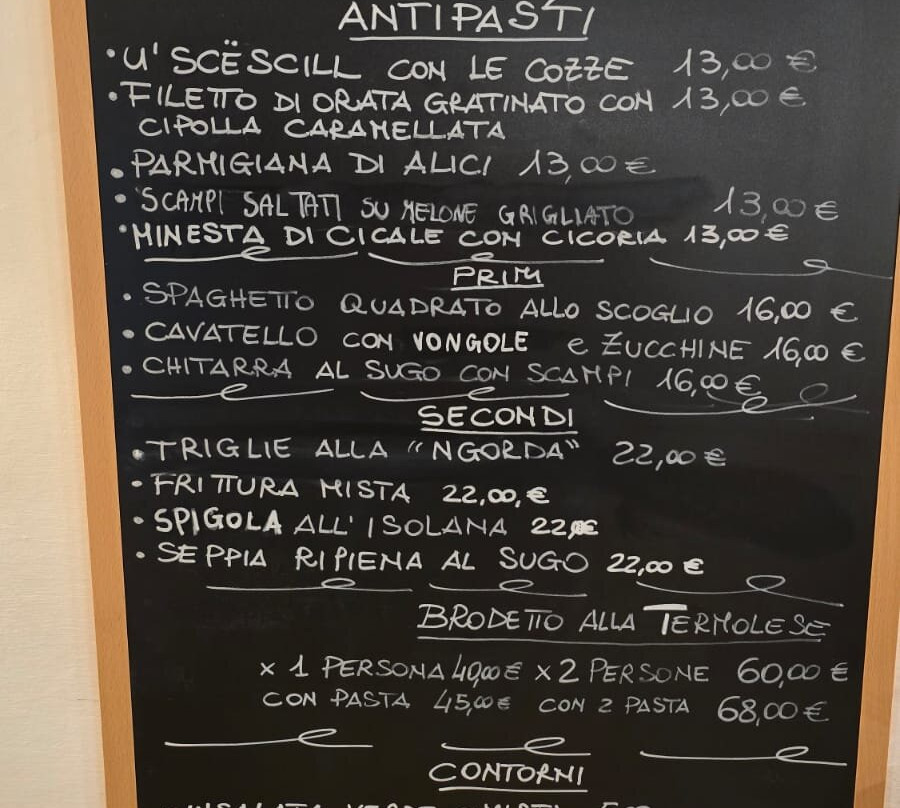 ANTIPASTI
• U' SCËSCILL CON LE COZZE 13,00 €
• FILETTO DI ORATA GRATINATO CON 13,00 €
CIPOLLA CARAMELLATA
• PARMIGIANA DI ALICI 13,00 €
• SCAMPI SALTATI SU MELONE GRIGLIATO 13,00 €
• MINESTA DI CICALE CON CICORIA 13,00 €
PRIMI
• SPAGHETTO QUADRATO ALLO SCOGLIO 16,00 €
• CAVATELLO CON VONGOLE e ZUCCHINE 16,00 €
• CHITARRA AL SUGO CON SCAMPI 16,00 €
SECONDI
• TRIGLIE ALLA "NGORDA" 22,00 €
• FRITTURA MISTA 22,00,€
• SPIGOLA ALL'ISOLANA 22,00€
• SEPPIA RIPIENA AL SUGO 22,00 €
BRODETTO ALLA TERMOLESE
x 1 PERSONA 40,00 € x 2 PERSONE 60,00 €
CON PASTA 45,00 € CON 2 PASTA 68,00 €
CONTORNI